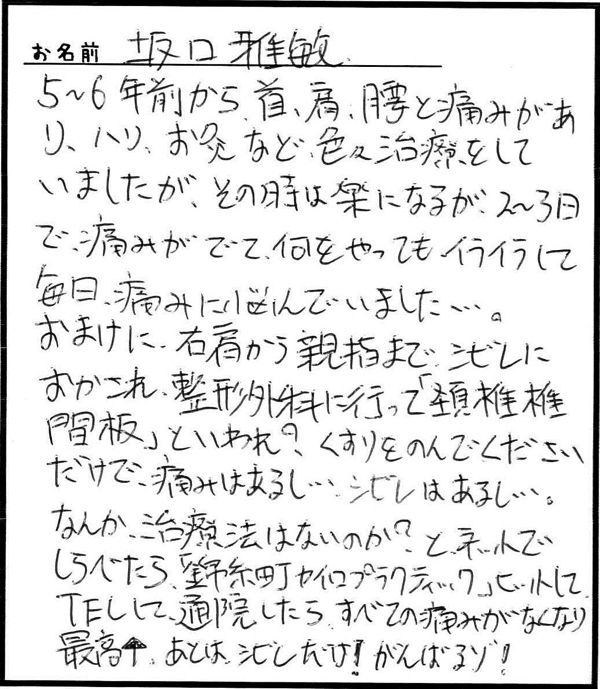 お名前 坂口雅敏
5〜6年前から、首、肩、腰と痛みがあ
り、ハリ、お灸など、色々治療をして
いましたが、その時は楽になるが、2〜3日
で、痛みがでて、何をやってもイライラして
毎日、痛みに悩んでいました…。
おまけに、右肩から親指まで、シビレに
おかされ、整形外科に行って「頚椎椎
間板」といわれ？、くすりをのんでください
だけで、痛みはあるし…、シビレはあるし…。
なんか、治療法はないのか？と、ネットで
しらべたら、「錦糸町カイロプラクティック」ヒットして
TELして、通院したら、すべての痛みがなくなり
最高↑、あとは、シビレだけ！がんばるゾ！